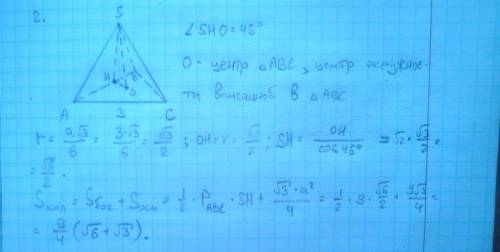 2.
S
∠SHO = 45°
O - центр △ABC, центр окружнос-
ти вписанной в △ABC
H
B
O
A
3
C
r = a√3/6 = 3·√3/6 = √3/2 ; OH = r = √3/2 ; SH = OH/cos45° = √2 · √3/2 =
= √6/2.
Sпол = Sбок + Sосн = 1/2 · P_ABC · SH + √3·a²/4 = 1/2 · 9 · √6/2 + 9√3/4 =
= 9/4 (√6 + √3).